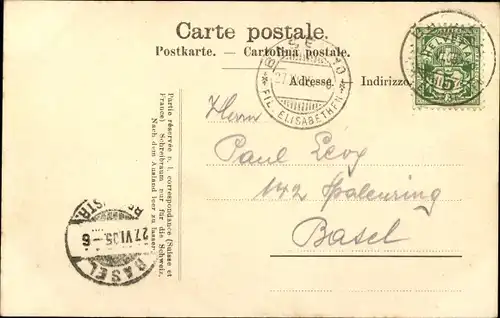 Carte postale.
Postkarte. — Cartolina postale.
Adresse. — Indirizzo.
FIL. ELISABETHEN
HELVETIA
5
Herrn
Paul
142
Basel
Partie réservée à la correspondance (Suisse et
France) Schreibraum nur für die Schweiz.
Nach dem Ausland leer zu lassen
27.VI.05.-6
BASEL